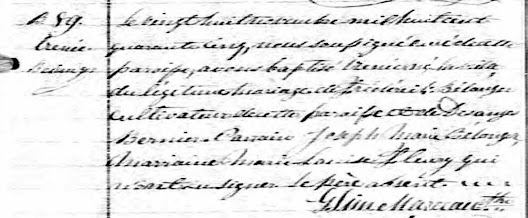 B 59.
Irénée
Bélanger
Le vingt huit novembre mil huit cent
quarante cinq, nous soussigné curé de cette
paroisse, avons baptisé Irénée, né la veille
du légitime mariage de Frédéric Bélanger
cultivateur de cette paroisse et de Desanges
Bernier. Parrain Joseph Marie Bélanger,
Marraine Marie Louise Fleury qui
n'ont su signer. Le père absent.